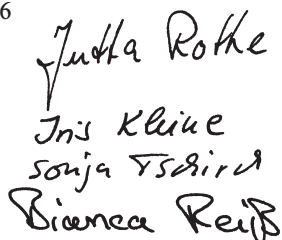 6
Jutta Rothe
Iris Kleine
Sonja Tschirch
Bianca Reiß